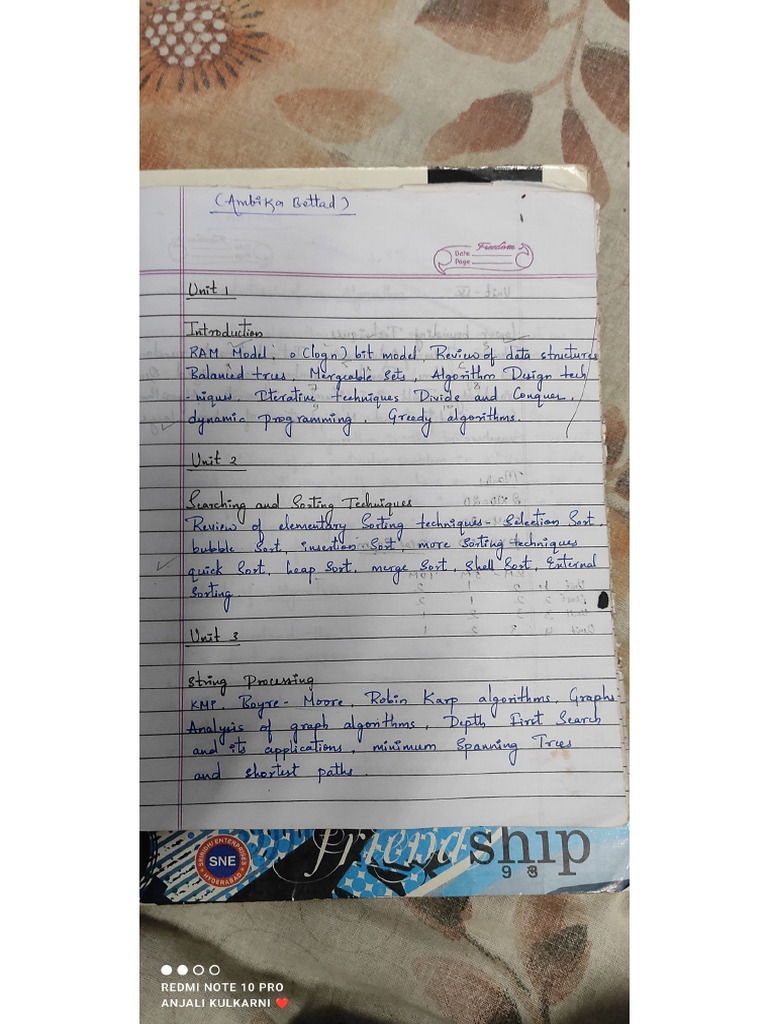 (Ambika Bettad)
Freedom
Date
Page
Unit 1
Introduction
RAM Model, o(logn) bit model, Review of data structures
Balanced trees, Mergeable Sets, Algorithm Design tech
-niques, Iterative techniques Divide and Conquer,
dynamic programming, Greedy algorithms.
Unit 2
Searching and Sorting Techniques
Review of elementary Sorting techniques - Selection Sort,
bubble Sort, insertion Sort, more sorting techniques
quick Sort, heap Sort, merge Sort, Shell Sort, External
Sorting.
Unit 3
String Processing
KMP, Boyre - Moore, Robin Karp algorithms, Graphs
Analysis of graph algorithms, Depth First Search
and its applications, minimum Spanning Trees
and shortest paths.
SRINIDHI ENTERPRISES
SNE
HYDERABAD
friendship
98
REDMI NOTE 10 PRO
ANJALI KULKARNI ❤️